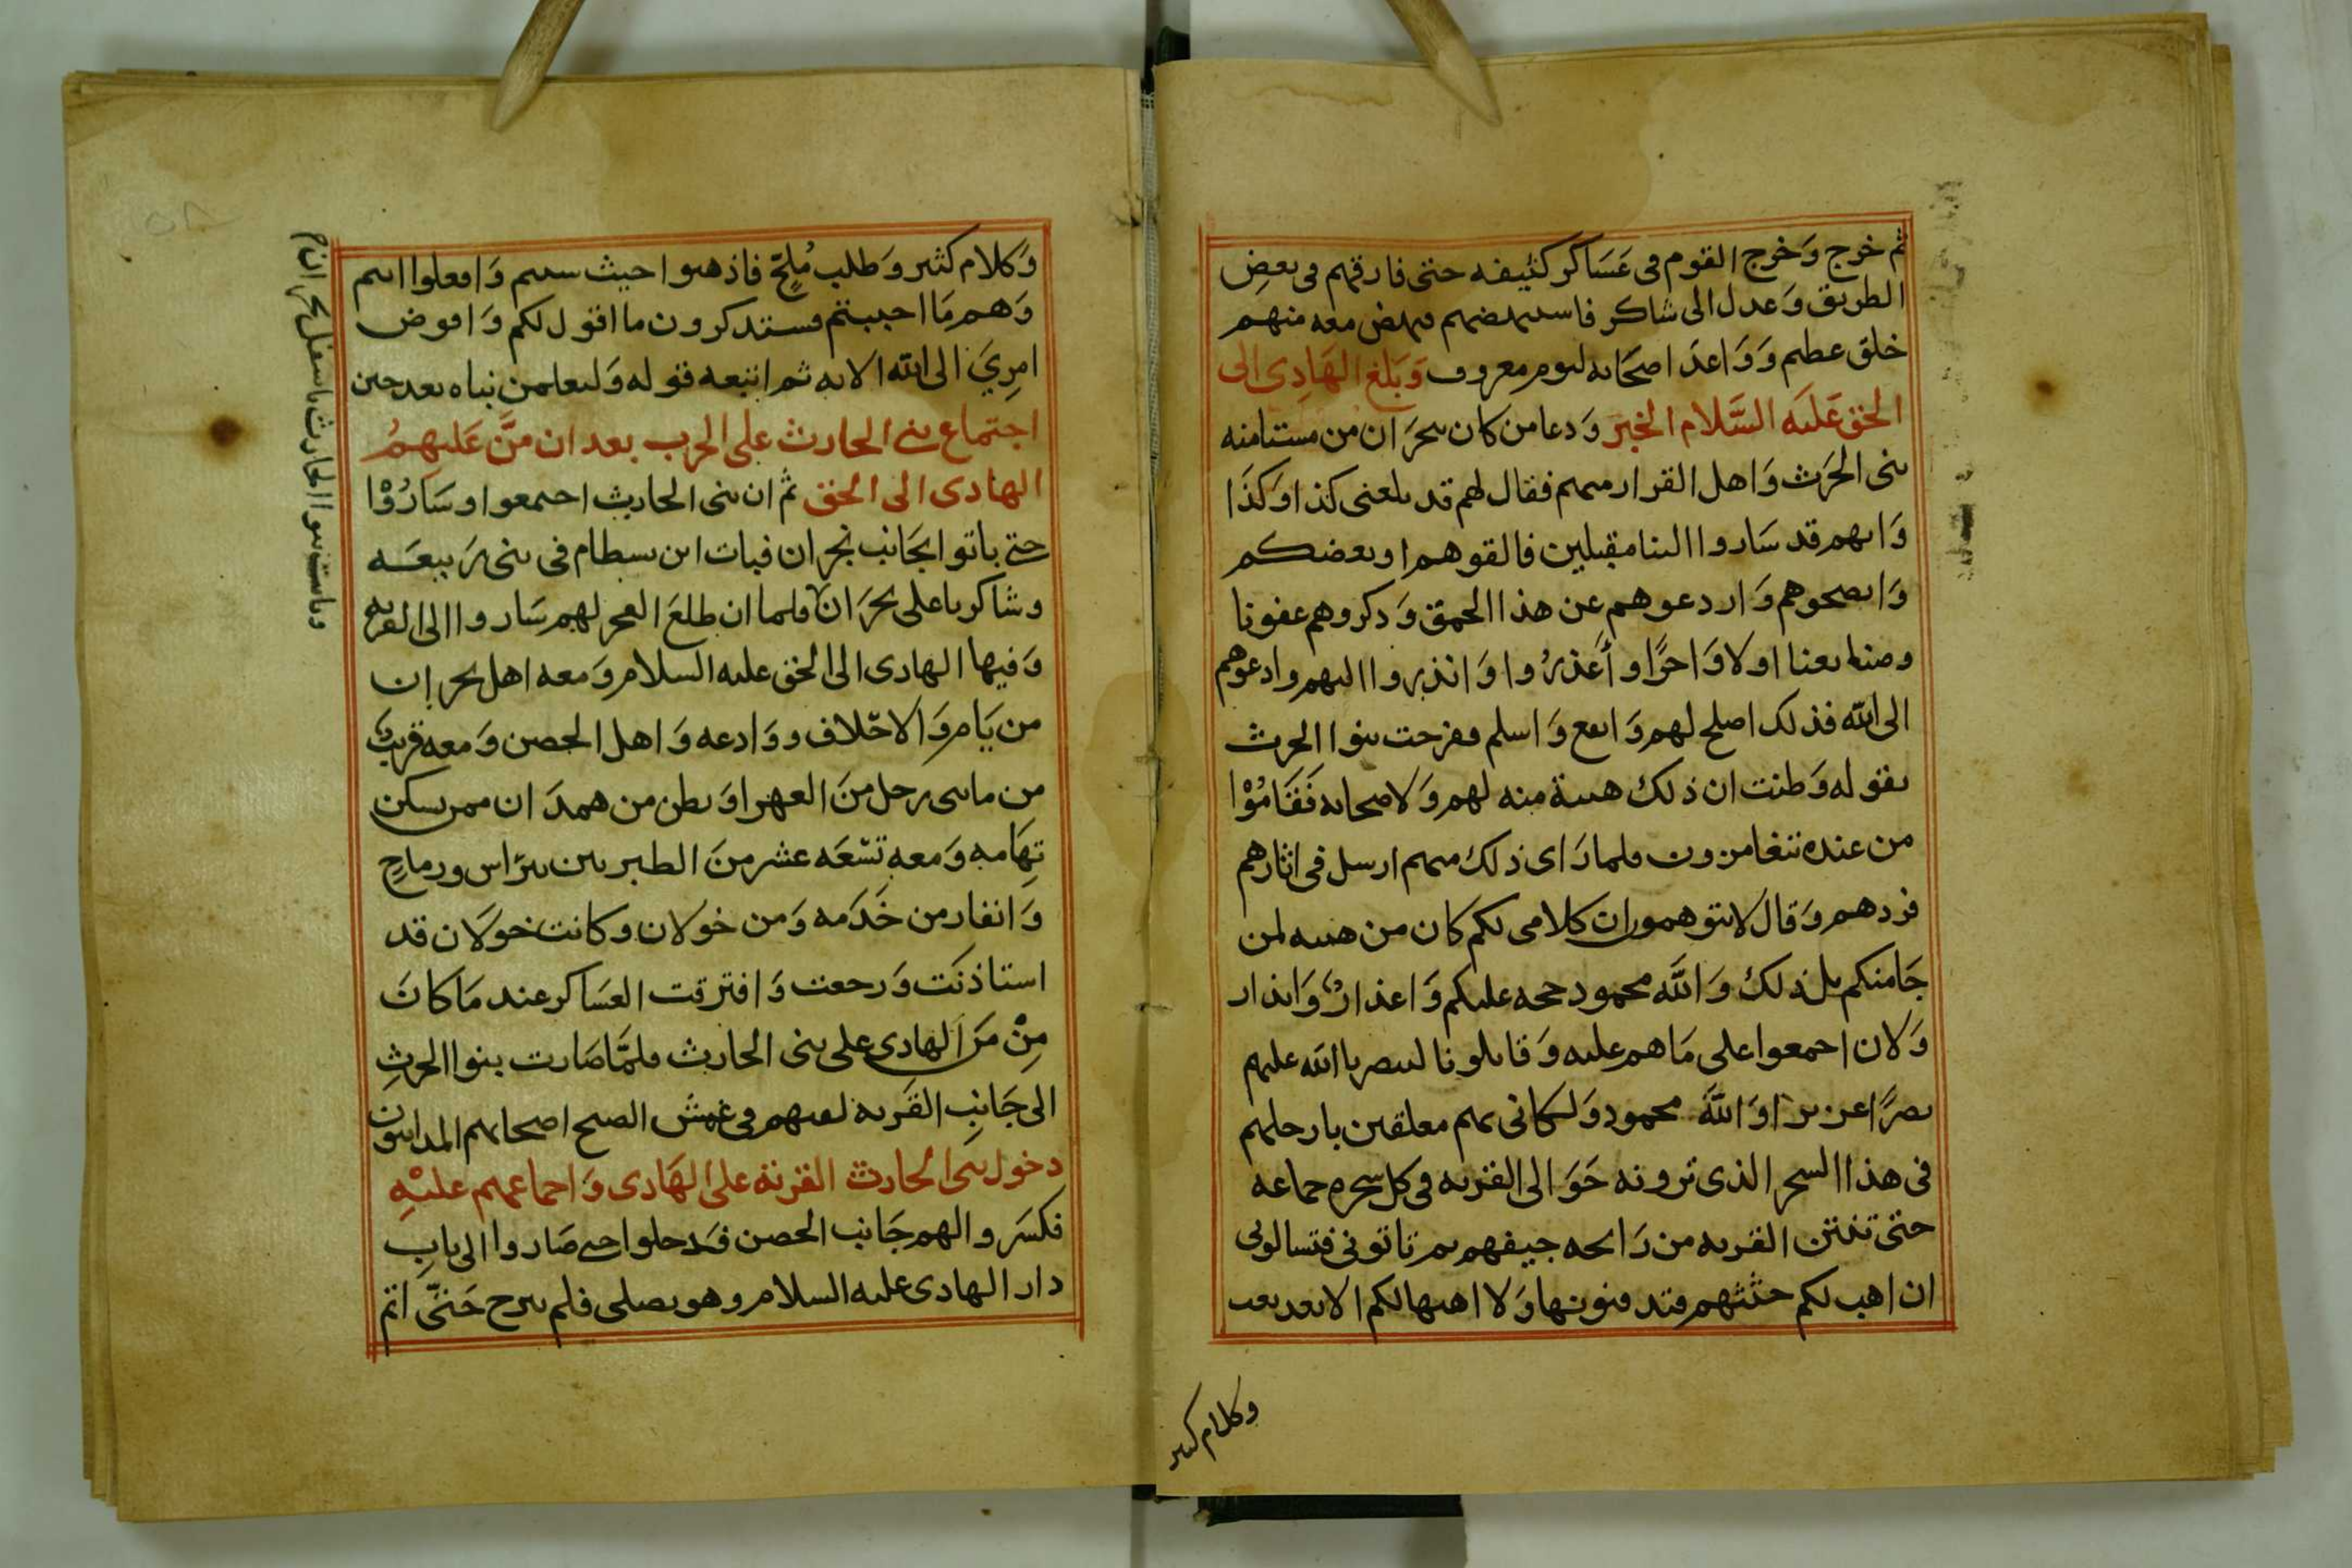 ثم خرج وَخرج القوم فى عَسَاكر كثيفه حتى فارقهم فى بعضِ
الطريق وَعدل الى شاكر فاستنهضهم فنهض معه منهم
خلق عظيم وَوَاعدَ اصحَابه ليوم معروف وَبَلغ الهَادِى الى
الحق عَليه السَّلام الخبر وَدعا من كان بنجرَان من مستامنه
بنى الحَرث وَاهل القرار منهم فقال لهم قد بلغنى كذا وَكذَا
وَانهم قد سَاروا الينا مقبلين فالقوهم او بعضكم
وَانصحوهم وَاردعوهم عن هذا الحمق وَذكروهم عفونا
وصنايعنا اولا وَاخرًا وأَعذرُوا وَانذروا اليهم وادعوهم
الى الله فذلك اصلح لهم وَانفع وَاسلم ففرحت بنوا الحرث
بقوله وَظنت ان ذلك هيبة منه لهم وَلاصحابه فَقَامُوْا
من عنده يتغامزون فلما رَاى ذلك منهم ارسل فى اثارهم
فردهم وَقال لا تتوهموا ان كلامى لكم كان من هيبه لمن
جَا منكم بل ذلك وَاللَّه محمود حجه عليكم وَاعذارٌ وَانذار
وَلان اجمعوا على مَا هم عليه وَقاتلونا لينصرنا الله عليهم
نصرًا عزيزا وَاللَّه محمود وَلكانى بهم معلقين بارجلهم
فى هذا السحر الذى ترونه حَوَالى القريه فى كل سحره جماعه
حتى تنتن القريه من رَايحه جيفهم ثم تاتونى فتسالونى
ان اهب لكم جثثهم فتدفنونها وَلا اهبها لكم الا بعد تعب
وكلام كثير
وَكلام كثير وَطلب مُلِحّ فاذهبوا حيث شيتم وَافعلوا انتم
وَهم مَا احببتم فستذكرون ما اقول لكم وَافوض
امرِيَ الى الله الايه ثم اتبعه قوله وَلتعلمن نباه بعد حين
اجتماع بنى الحارث على الحرب بعد ان منَّ عَليهمُ
الهادى الى الحق ثم ان بنى الحارث اجتمعوا وسَارُوْا
حتى باتوا بجَانب نجران فبات ابن بسطام فى بنى رَبيعَه
وشاكر باعلى نجرَان فلما ان طلعَ الفجر لهم سَاروا الى القريه
وَفيها الهادى الى الحق عليه السلام وَمعه اهل نجران
من يَام وَالاحْلاف ووَادعه وَاهل الحصن وَمعه قريبٌ
من مايتى رَجل منَ العهرا وَبطن من همدَان ممن يسكن
تِهَامه وَمعه تسْعَه عشر منَ الطبريين بترَاس ورماحٍ
وَانفار من خَدَمه وَمن خولان وكانت خولَان قد
استاذنَت وَرجعت وَافترقت العسَاكر عند مَا كانَ
مِنْ مَن الهادى على بنى الحارث فلمَّا صَارت بنوا الحرثِ
الى جَانِب القَريه لقيهم فى غبشَ الصبح اصحابهم المدانيون
دخول بنى الحارث القرية على الهَادى وَاجماعهم عليْهِ
فكسَروا لهم جَانب الحصن فدخلوا حتى صَاروا الى بابِ
دار الهادى عليه السلام وهو يصلى فلم يبرح حَتَّى اتم
وباتت بنوا الحارث باسفل نجران م